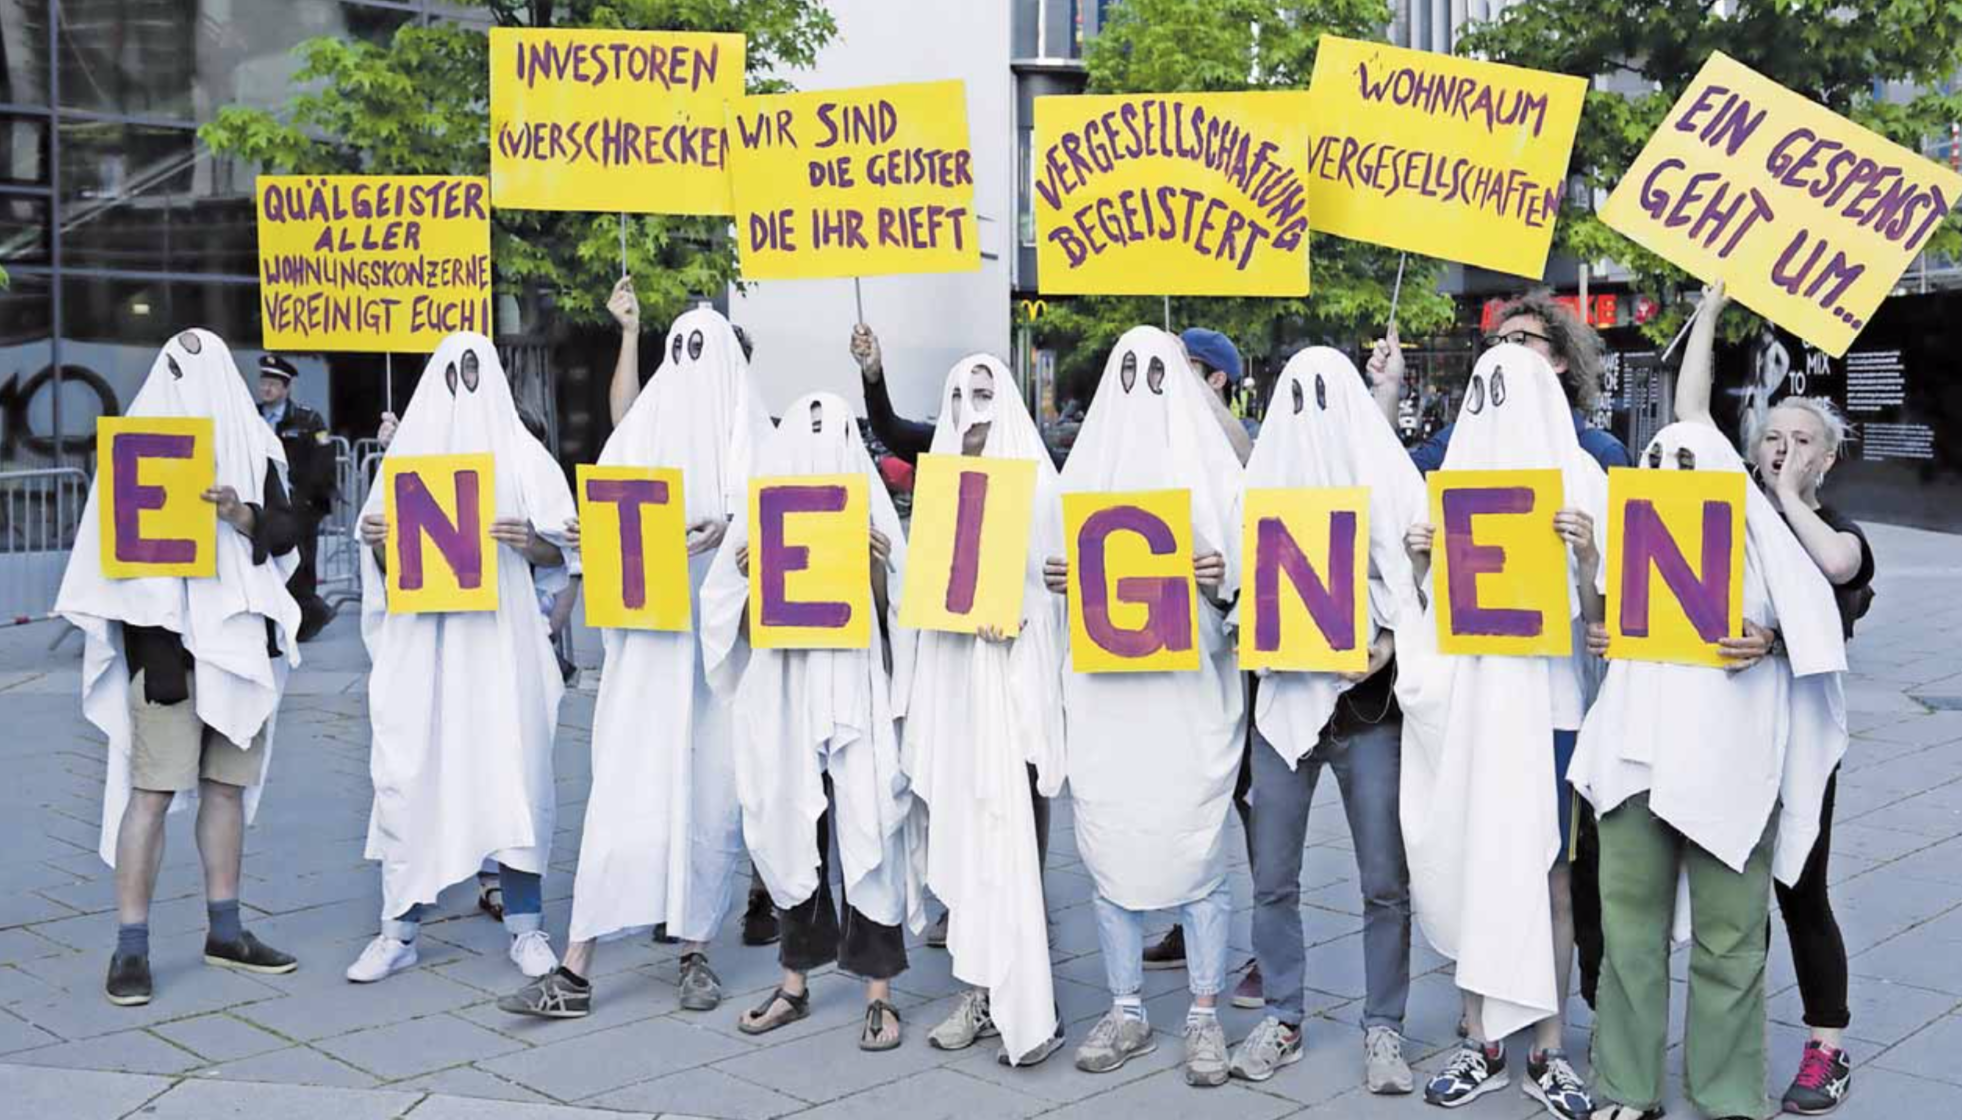 QUÄLGEISTER
ALLER
WOHNUNGSKONZERNE
VEREINIGT EUCH!
INVESTOREN
(V)ERSCHRECKEN
WIR SIND
DIE GEISTER
DIE IHR RIEFT
VERGESELLSCHAFTUNG
BEGEISTERT
WOHNRAUM
VERGESELLSCHAFTEN
EIN GESPENST
GEHT UM...
E N T E I G N E N
MIX
TO